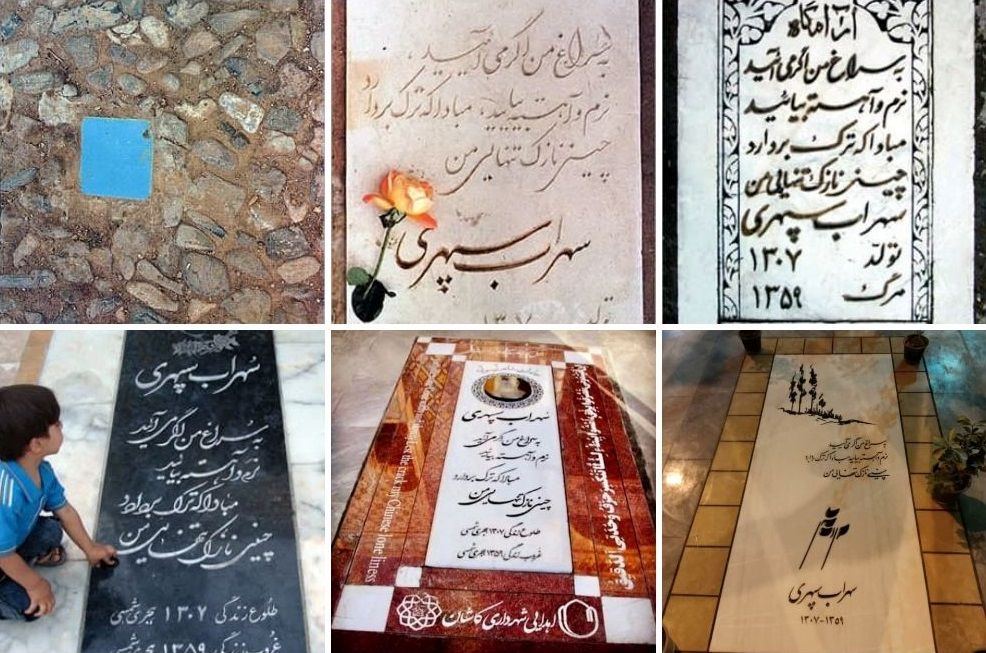 به سراغ من اگر می آیید،
نرم و آهسته بیایید، مبادا که ترک بردارد
چینی نازک تنهایی من
سهراب سپهری
تولد ۱۳۰۷
آرامگاه
به سراغ من اگر می آئید
نرم و آهسته بیائید
مبادا که ترک بردارد
چینی نازک تنهایی من
سهراب سپهری
تولد ۱۳۰۷
مرگ ۱۳۵۹
سهراب سپهری
به سراغ من اگر می آئید
نرم و آهسته بیائید
مبادا که ترک بردارد
چینی نازک تنهایی من
طلوع زندگی ۱۳۰۷ هجری شمسی
غروب زندگی ۱۳۵۹ هجری شمسی
سهراب سپهری
به سراغ من اگر می آئید
نرم و آهسته بیائید
مبادا که ترک بردارد
چینی نازک تنهایی من
طلوع زندگی ۱۳۰۷ هجری شمسی
غروب زندگی ۱۳۵۹ هجری شمسی
my Chinese loneliness
اهدایی شهرداری کاشان
به سراغ من اگر می آیید
نرم و آهسته بیایید مبادا که ترک بردارد
چینی نازک تنهایی من
سهراب سپهری
۱۳۰۷-۱۳۵۹